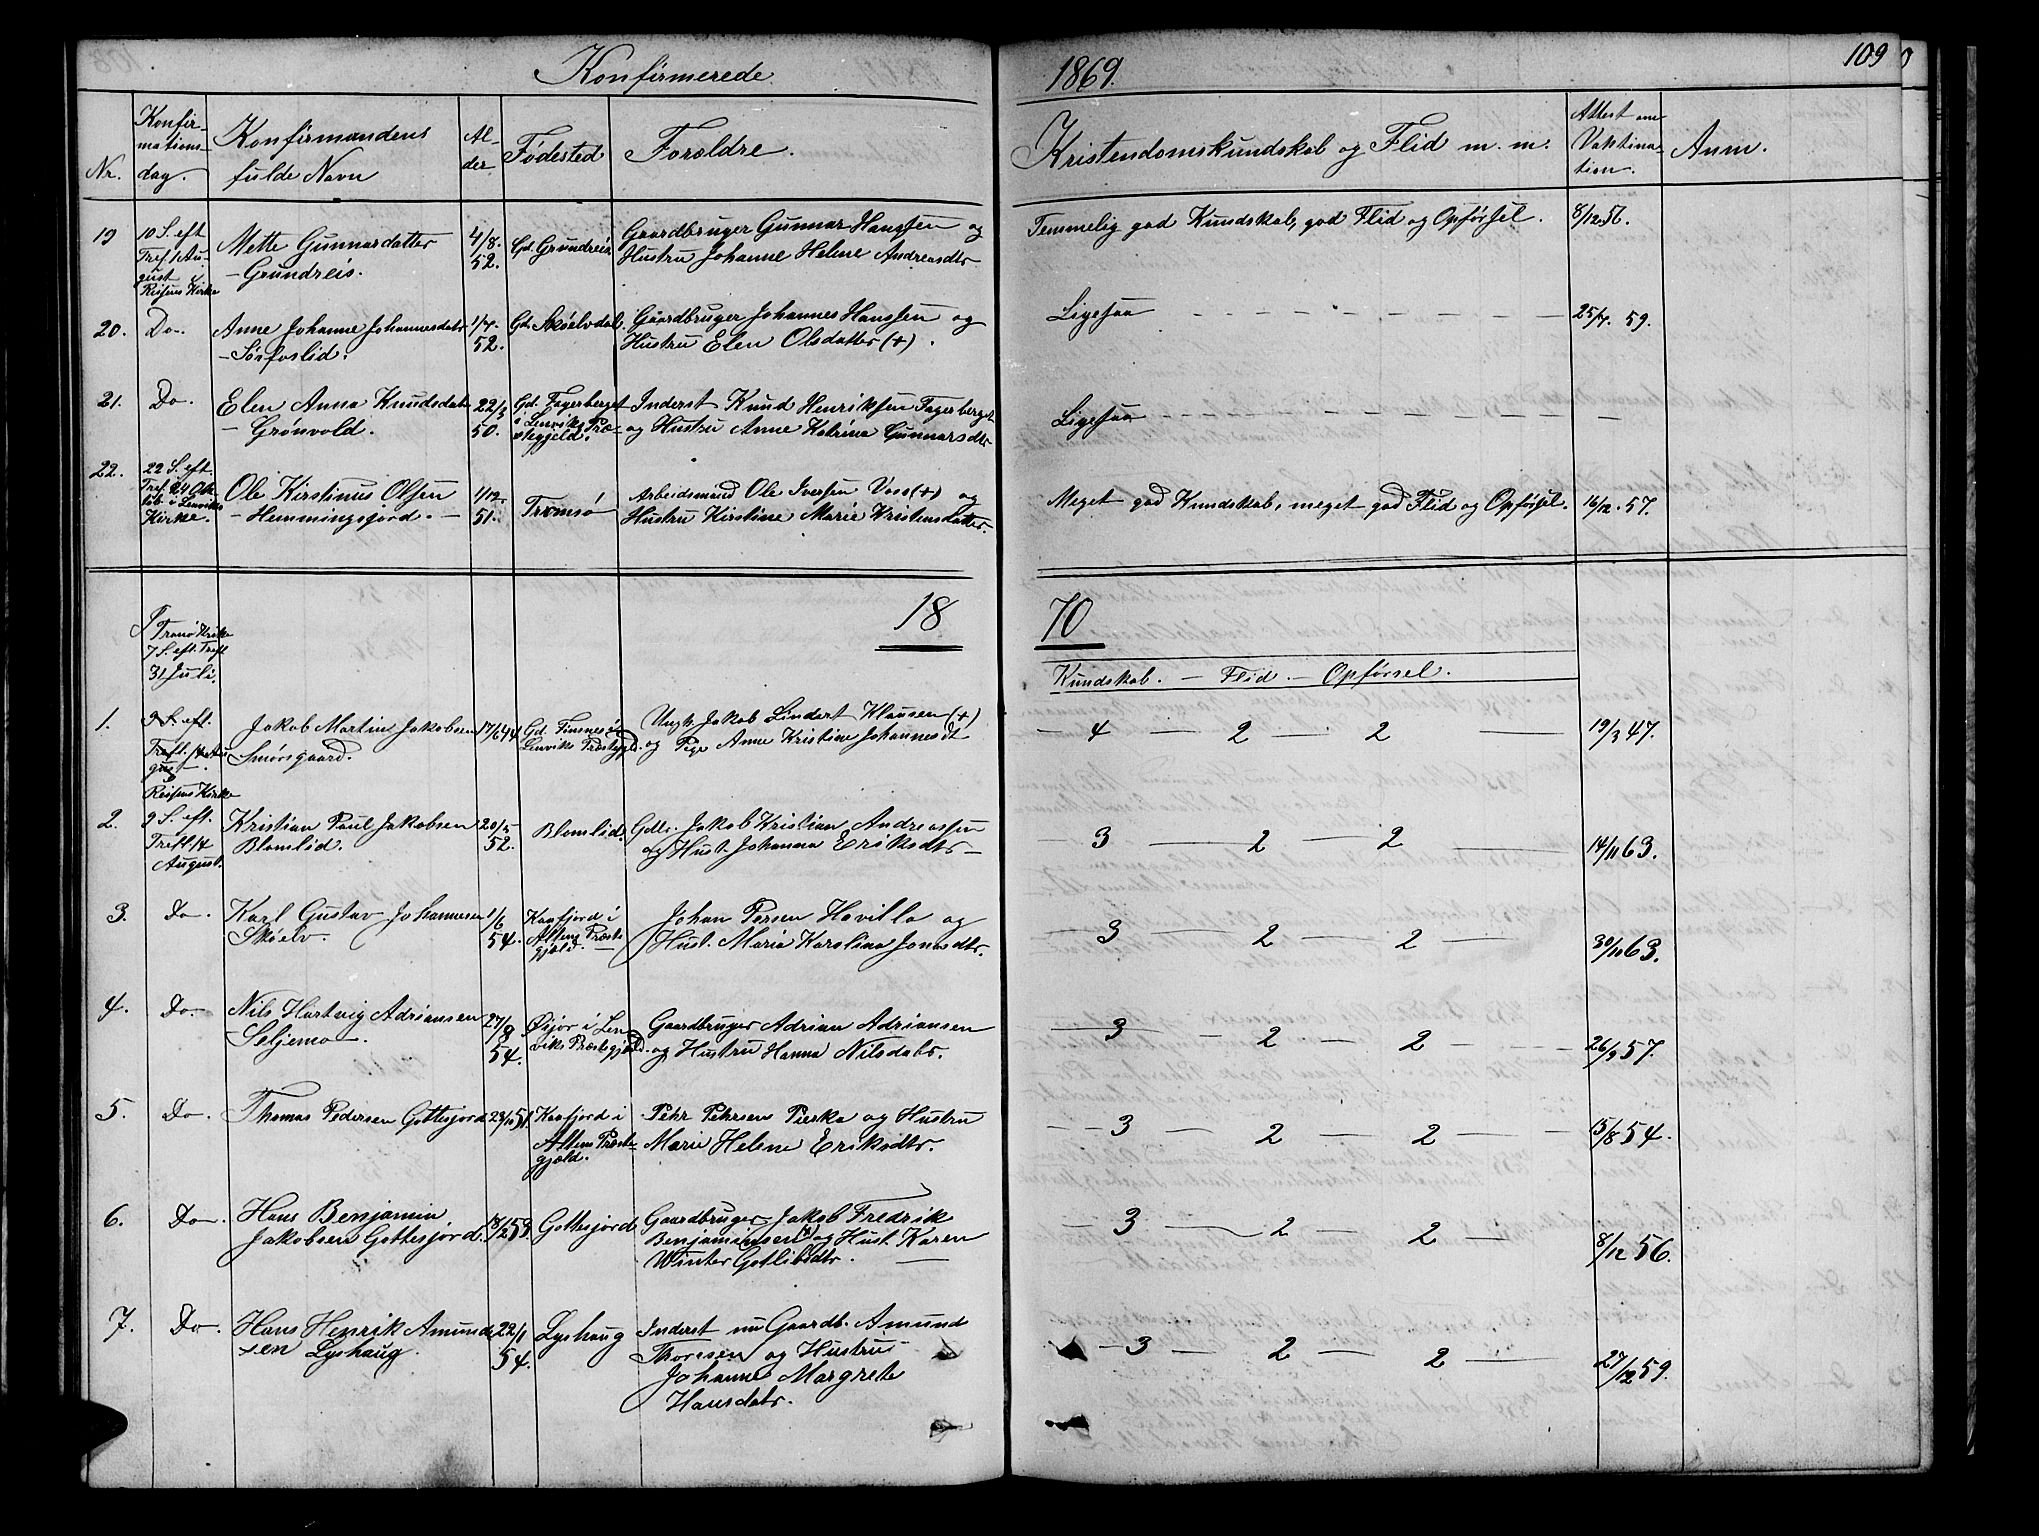 Konfirmerede
1869.
109
Nr.
Konfir-
mations-
dag.
Konfirmandens
fulde Navn
Al-
der
Fødested
Forældre.
Kristendomskundskab og Flid m. m.
Attest om
Vaktina-
tion.
Anm.
19
10 S. eft
Tref. 1 Au-
gust
Reisens Kirke
Mette Gunnarsdatter
- Grundreis.
4/8.
52.
Gd. Grundreis
Gaardbruger Gunnar Hanssen og
Hustru Johanne Helene Andreasdtr
Temmelig god Kundskab, god Flid og Opførsel.
8/12 56.
20.
Do.
Anne Johanne Johannesdatr
- Sørfoslid.
1/7.
52.
Gd. Skøelvdal.
Gaardbruger Johannes Hanssen og
Hustru Elen Olsdatter (+).
Ligesaa
25/7. 59.
21.
Do.
Elen Anna Knudsdatr
- Grønvold.
22/3
50.
Gd. Fagerberget
i Lenviks Præ-
stegjeld.
Inderst Knud Henriksen Fagerberget
og Hustru Anne Katrina Gunnarsdtr
Ligesaa
22.
22 S. eft.
Tref. 24 Ok-
tob. i Lenviks
Kirke.
Ole Kirstinus Olsen
- Hemmingsfjord. -
1/12.
51.
Tromsø
Arbeidsmand Ole Iversen Voss (+) og
Hustru Kirstine Marie Kristensdatter.
Meget god Kundskab, meget god Flid og Opførsel.
16/12. 57.
18
70
I Tranø Kirke
7 S. eft. Tref
31 Juli.
Kundskab. - Flid. - Opførsel.
1.
9 S. eft.
Tref. 14 Au-
gust.
Jakob Martin Jakobsen
Smørsgaard.
17/6 44
Gd. Finnesø i
Lenviks Præstegjd.
Ungk. Jakob Lindert Klausen (+)
og Pige Anne Kristine Johannesdt
4 - 2 - 2
19/3 47.
Reisens Kirke
2.
9 S. eft.
Tref. 14
August.
Kristian Paul Jakobsen
Blomlid.
20/5
52.
Blomlid.
Gdbr. Jakob Kristian Andreassen
og Hust. Johanna Eriksdtr -
3 - 2 - 2
14/11 63.
3.
Do.
Karl Gustav Johannesen
Skøelv.
1/6
54.
Kaafjord i
Altens Præste
gjæld. -
Johan Persen Havilla og
Hust. Maria Karolina Jonasdtr.
3 - 2 - 2
30/11 63.
4.
Do.
Nils Hartvig Adriansen
Seljemo -.
27/8
54.
Øijor i Len
viks Præstegjæld.
Gaardbruger Adrian Adriansen
og Hustru Hanna Nilsdatr.
3 - 2 - 2
26/9 57.
5.
Do.
Thomas Pedersen Gottesjord
23/10 51
Kaafjord i
Altens Præste
gjæld.
Pehr Pehrsen Pieska og Hustru
Marie Helene Eriksdtr.
3 - 2 - 2
15/8 54.
6.
Do.
Hans Benjamin
Jakobsen Gottesjord.
18/2 53.
Gottesjord
Gaardbruger Jakob Fredrik
Benjaminsen (+) og Hust. Karen
Winter Gotlibsdtr. -
3 - 2 - 2
8/12 56.
7.
Do.
Hans Henrik Amund
sen Lyshaug.
22/1
54.
Lyshaug
Inderst nu Gaardb. Amund
Thoresen og Hustru
Johanne Margrete
Hansdatr.
3 - 2 - 2
27/12 59.